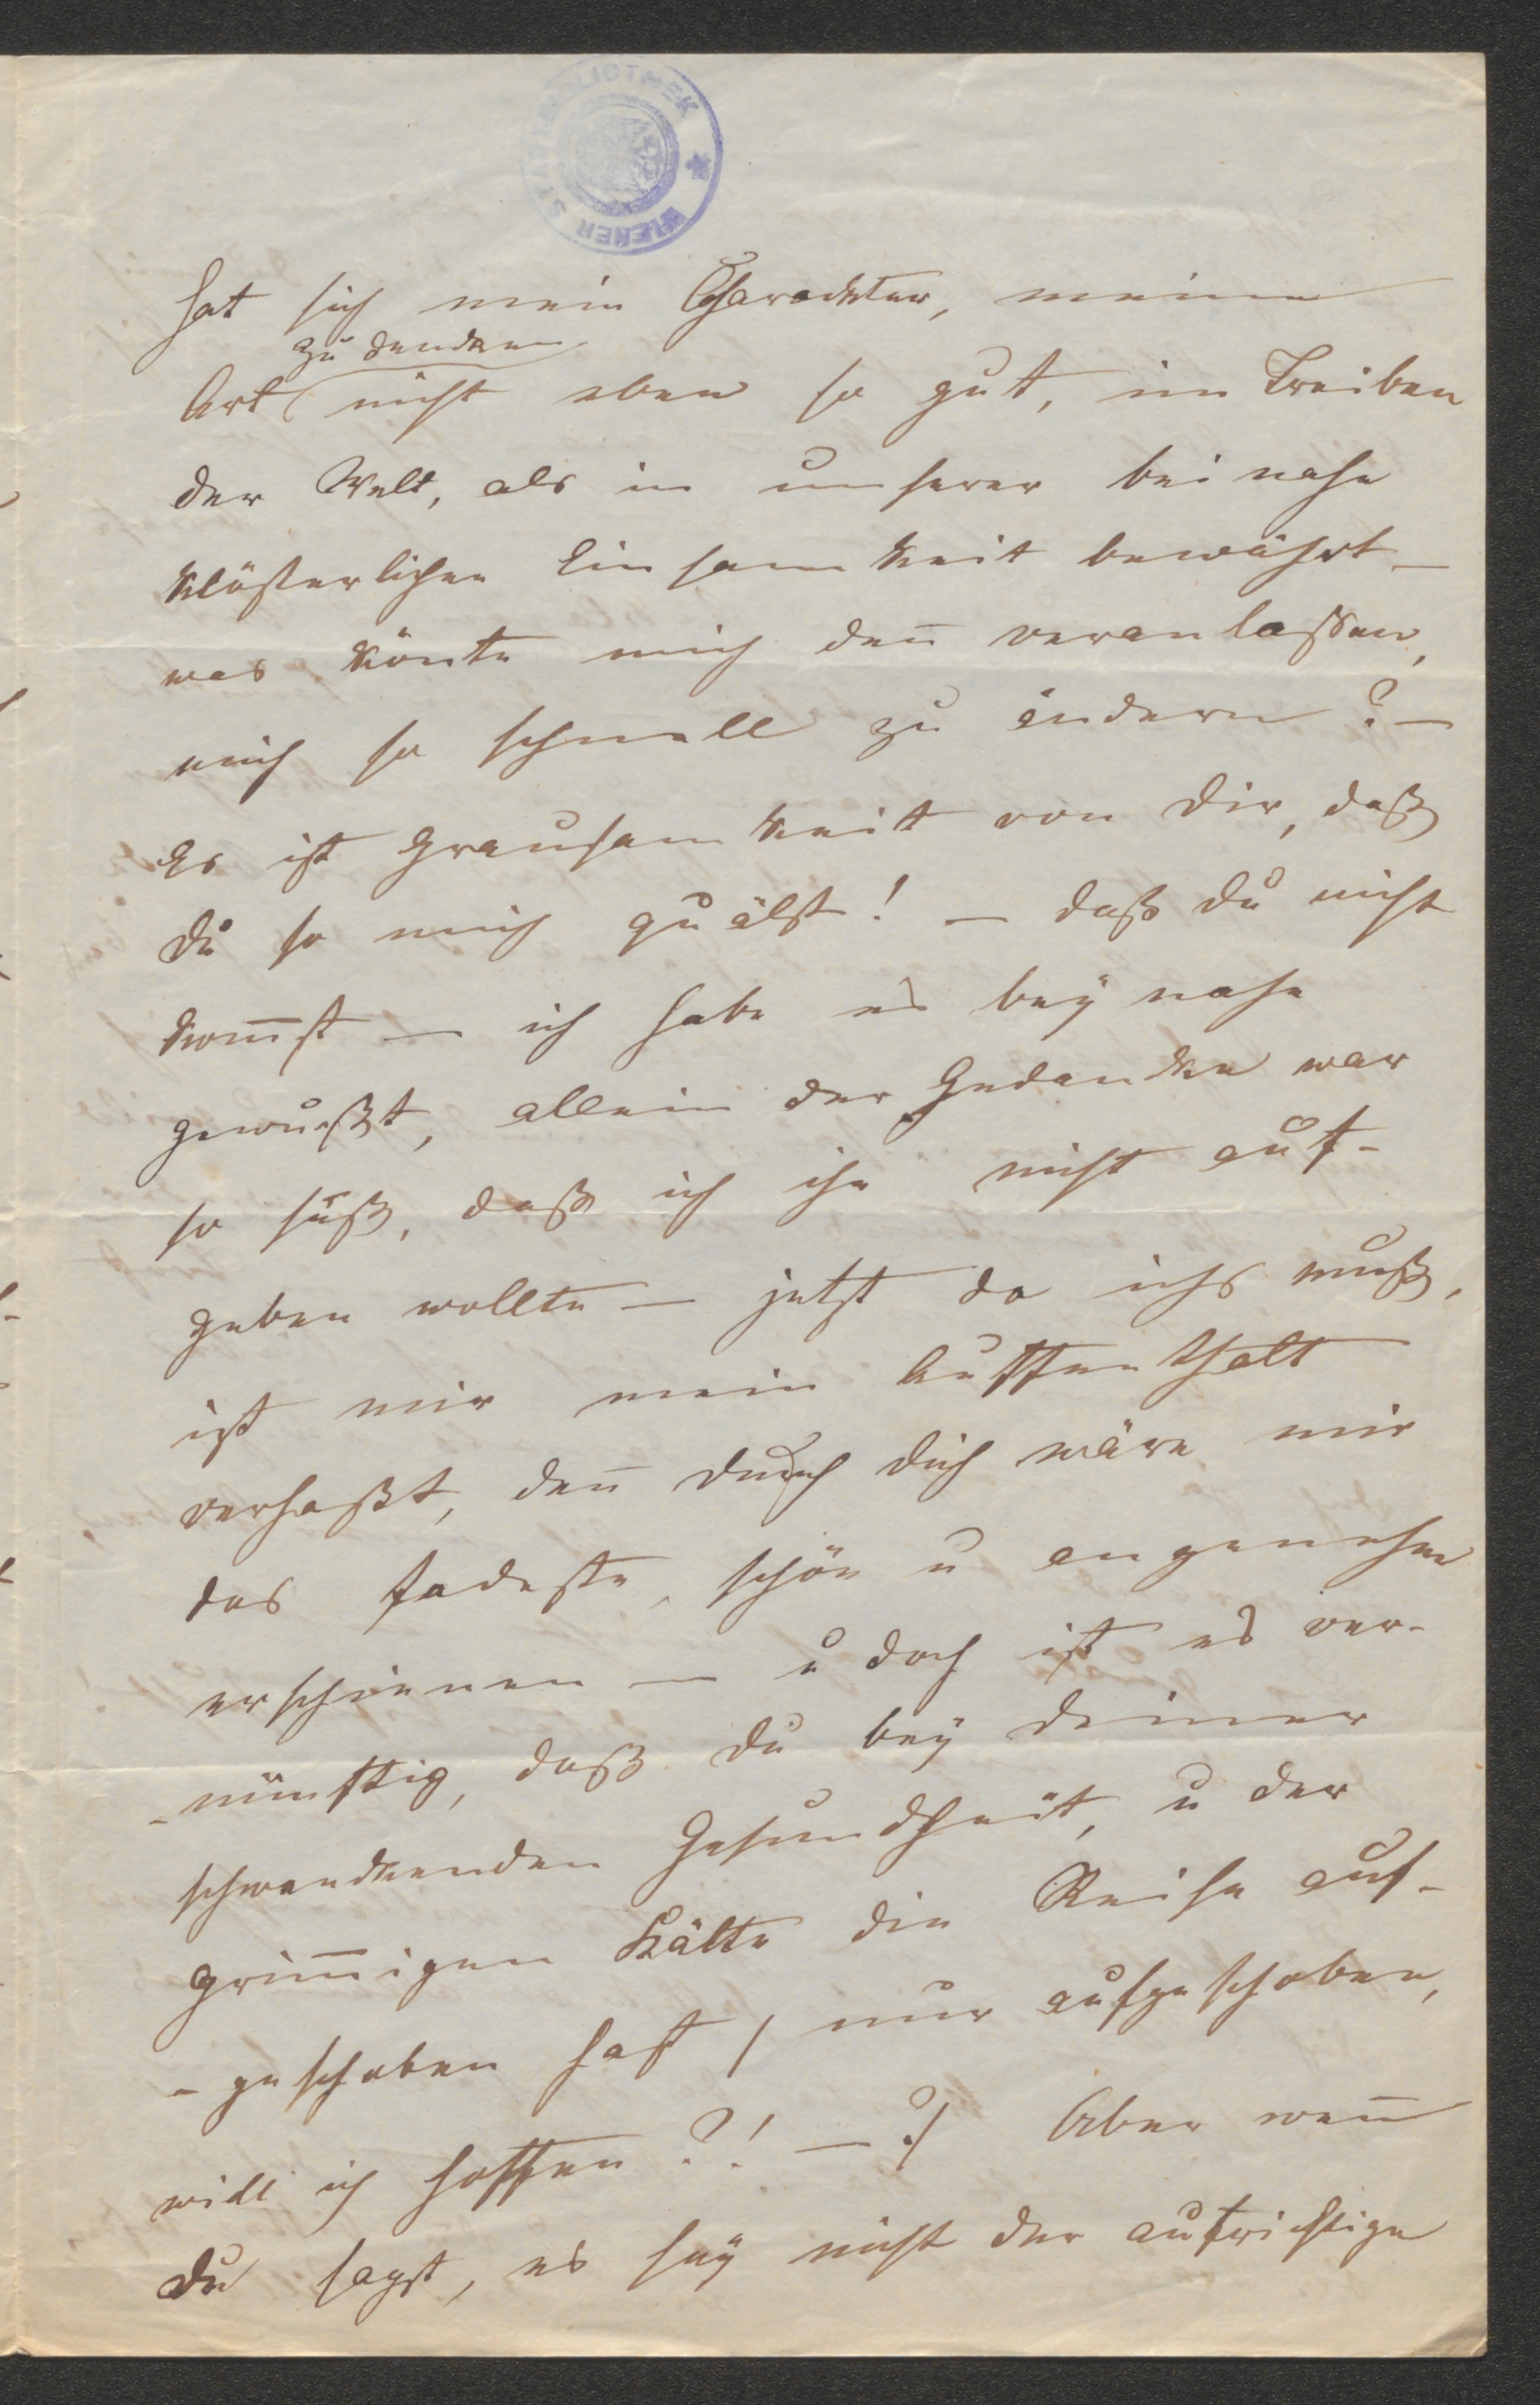 WIENER STADTBIBLIOTHEK
hat sich mein Charackter, meine
zu dencken
Art nicht eben so gut, im Treiben
der Welt, als in unserer bei nahe
klösterlichen Einsamkeit bewährt –
was könte mich den̄ veranlassen,
mich so schnell zu ändern? –
Es ist Grausamkeit von Dir, daß
du so mich quälst! – daß du nicht
kom̄st – ich habe es beÿ nahe
gewußt, allein der Gedancke war
so süß, daß ich ihn nicht auf-
geben wollte – jetzt da ichs muß,
ist mir mein Auffenthalt
verhaßt, den̄ durch dich wäre mir
das fadeste, schön u angenehm
erschienen – u doch ist es ver-
-nünftig, daß du beÿ deiner
schwanckenden Gesundheit, u der
grim̄igen Kälte die Reise auf-
-geschoben hast / nur aufgeschoben,
will ich hoffen?! – ?/ Aber wen̄
du sagst, es seÿ nicht der aufrichtige